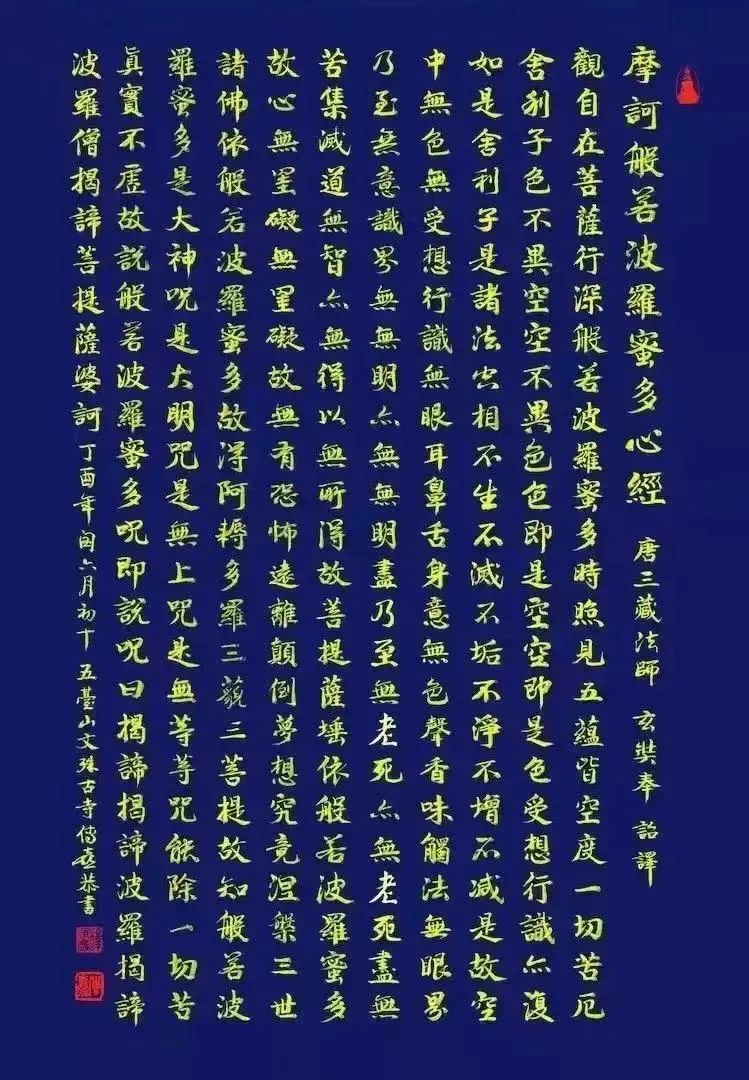 摩訶般若波羅蜜多心經 唐三藏法師 玄奘奉 詔譯
觀自在菩薩行深般若波羅蜜多時照見五蘊皆空度一切苦厄
舍利子色不異空空不異色色即是空空即是色受想行識亦復
如是舍利子是諸法空相不生不滅不垢不淨不增不減是故空
中無色無受想行識無眼耳鼻舌身意無色聲香味觸法無眼界
乃至無意識界無無明亦無無明盡乃至無老死亦無老死盡無
苦集滅道無智亦無得以無所得故菩提薩埵依般若波羅蜜多
故心無罣礙無罣礙故無有恐怖遠離顛倒夢想究竟涅槃三世
諸佛依般若波羅蜜多故得阿耨多羅三藐三菩提故知般若波
羅蜜多是大神呪是大明咒是無上咒是無等等咒能除一切苦
眞實不虛故說般若波羅蜜多呪即說呪曰揭諦揭諦波羅揭諦
波羅僧揭諦菩提薩婆訶 丁酉年閏六月初十五臺山文殊古寺傳恭書